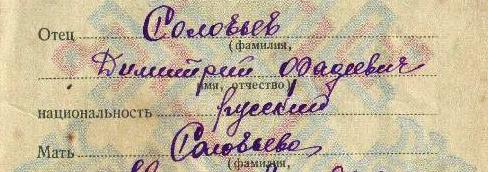 Отец Соловьев
(фамилия,
Димитрий Фадеевич
имя, отчество)
национальность русский
Мать Соловьева
(фамилия,